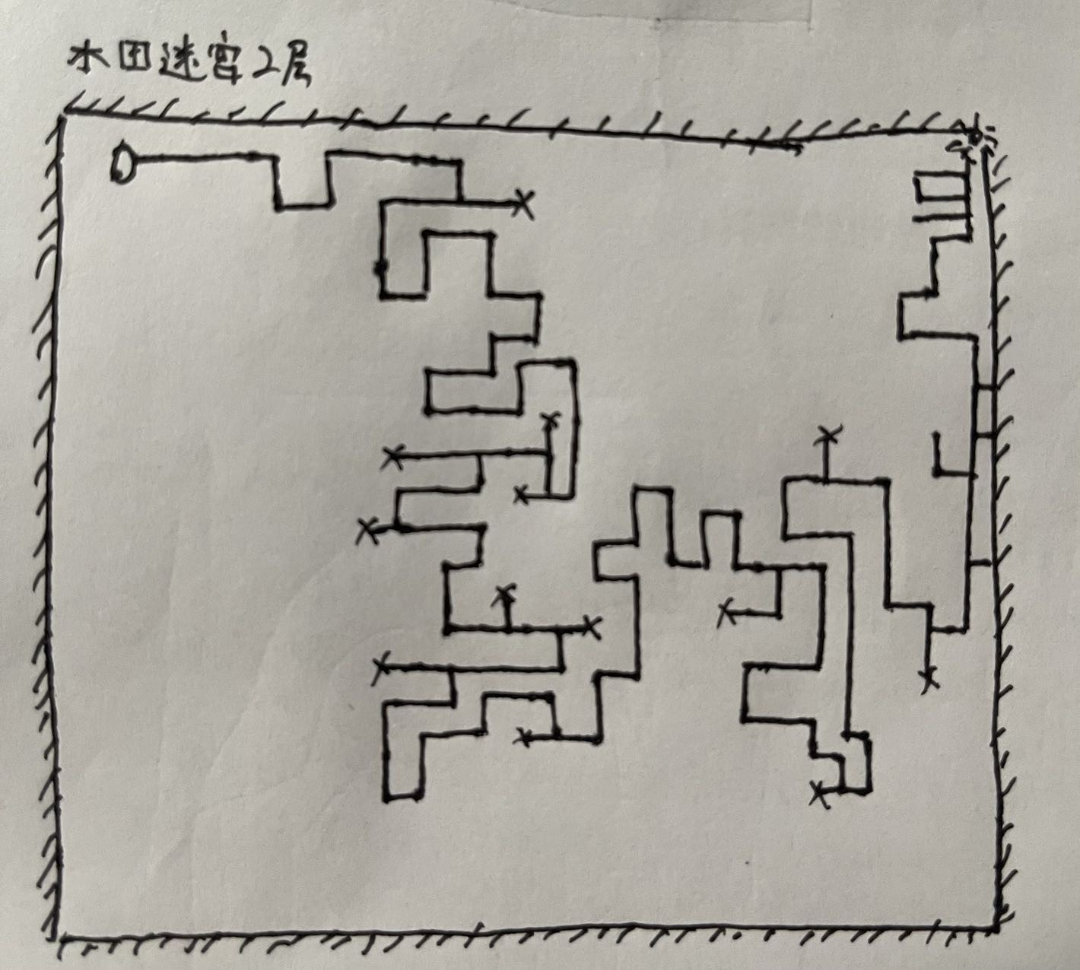 水田迷宫2层